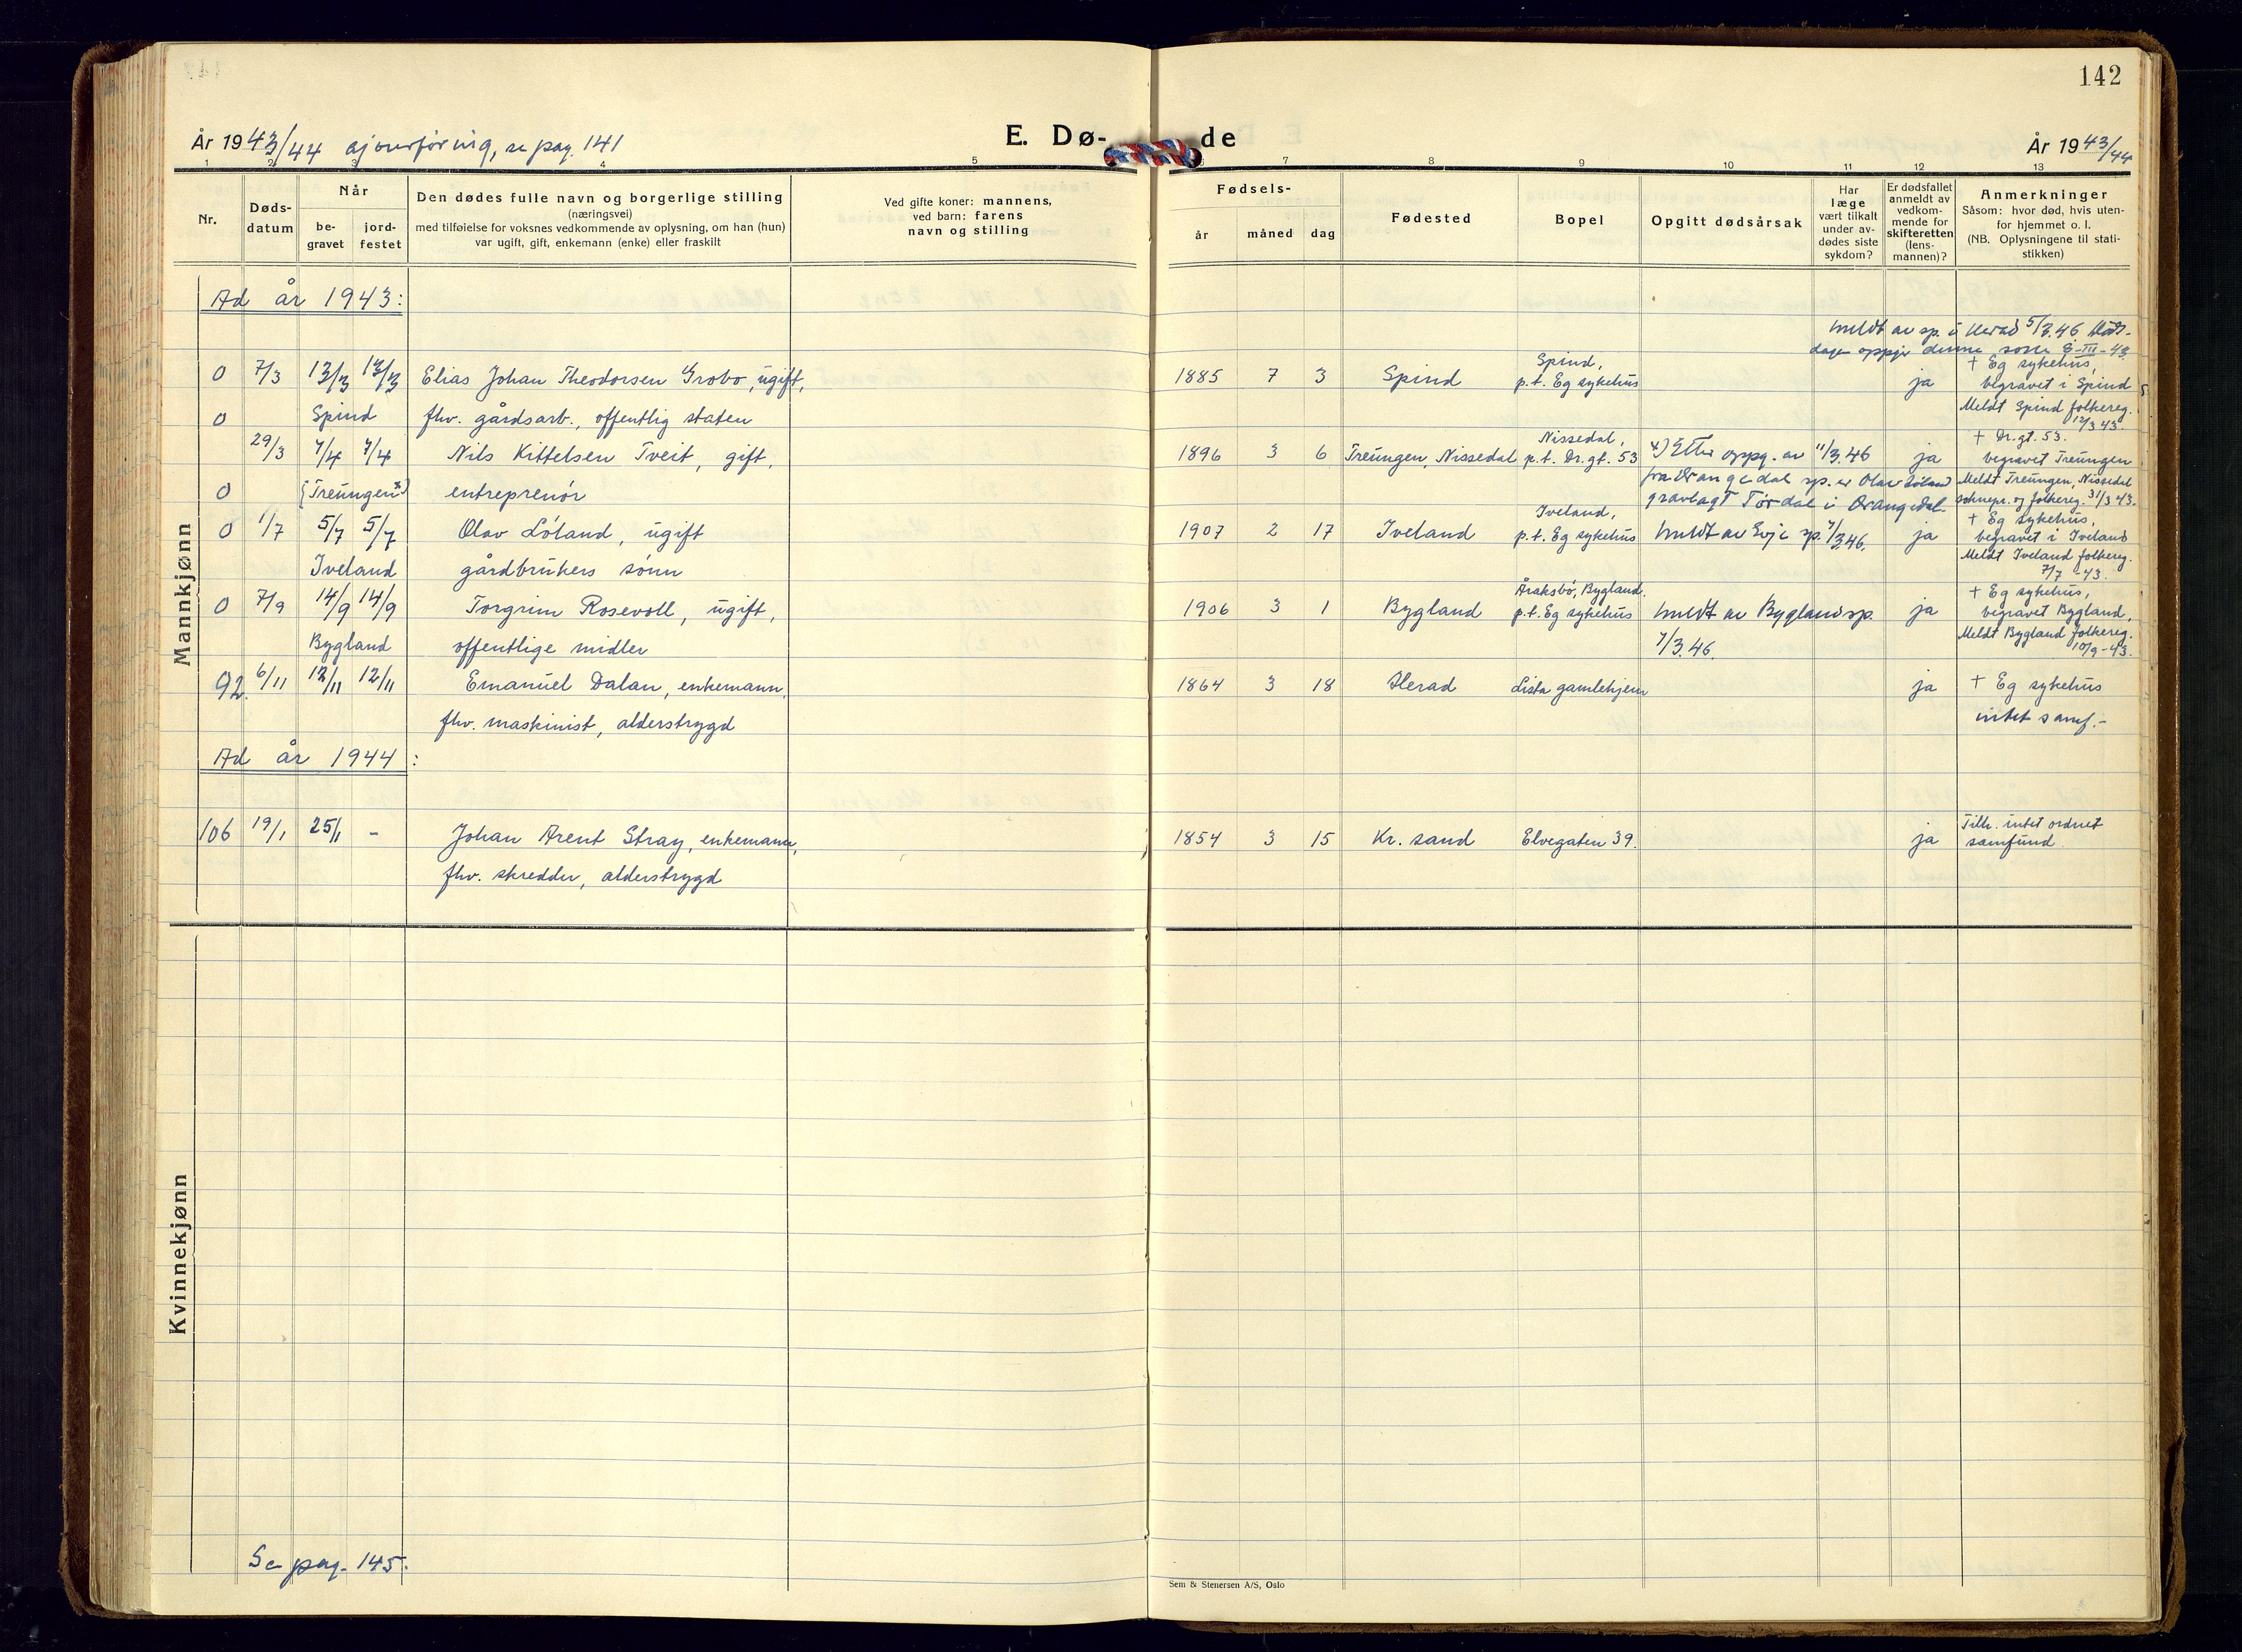 142
År 1943/44 ajourføring, se pag. 141
E. Døde
År 1943/44
1 2 3 4 5 6 7 8 9 10 11 12 13
Nr.
Døds-
datum
Når
be-
gravet
jord-
festet
Den dødes fulle navn og borgerlige stilling
(næringsvei)
med tilføielse for voksnes vedkommende av oplysning, om han (hun)
var ugift, gift, enkemann (enke) eller fraskilt
Ved gifte koner: mannens,
ved barn: farens
navn og stilling
Fødsels-
år måned dag
Fødested
Bopel
Opgitt dødsårsak
Har
læge
vært tilkalt
under av-
dødes siste
sykdom?
Er dødsfallet
anmeldt av
vedkom-
mende for
skifteretten
(lens-
mannen)?
Anmerkninger
Såsom: hvor død, hvis uten-
for hjemmet o. l.
(NB. Oplysningene til stati-
stikken)
Mannkjønn
Ad år 1943:
0 7/3 13/3 13/3 Elias Johan Theodorsen Grobo, ugift,
Spind
0 fhv. gårdsarb., offentlig staten
1885 7 3 Spind
Spind,
p.t. Eg sykehus
meldt av sp. i Herad 5/3.46 Døds-
dagen oppgir denne som 8-III-43
ja
† Eg sykehus,
begravet i Spind
Meldt Spind folkereg.
12/3 43.
29/3 7/4 7/4 Nils Kittelsen Tveit, gift,
0 (Treungen x) entreprenör
1896 3 6 Treungen, Nissedal
Nissedal,
p.t. Dr.gt. 53
x) Etter oppg. av 11/3.46
fra Drangedal sp. er Olav Löland
gravlagt Tørdal i Drangedal.
ja
† Dr.gt. 53.
begravet Treungen
Meldt Treungen, Nissedal
soknepr. og folkereg. 31/3 43.
0 1/7 5/7 5/7 Olav Löland, ugift
Iveland gårdbrukers sönn
1907 2 17 Iveland
Iveland,
p.t. Eg sykehus
meldt av Evje sp. 7/3.46.
ja
† Eg sykehus,
begravet i Iveland
Meldt Iveland folkereg.
7/7-43.
0 7/9 14/9 14/9 Torgrim Rosevoll, ugift,
Bygland offentlige midler
1906 3 1 Bygland
Åraksbö, Bygland.
p.t. Eg sykehus
meldt av Bygland sp.
7/3.46.
ja
† Eg sykehus,
begravet Bygland,
Meldt Bygland folkereg.
10/9-43.
92. 6/11 12/11 12/11 Emanuel Dalan, enkemann,
fhv. maskinist, alderstrygd
1864 3 18 Herad Lista gamlehjem
ja
† Eg sykehus
intet samf.-
Ad år 1944:
106 19/1 25/1 - Johan Arent Stray, enkemann,
fhv. skredder, alderstrygd
1854 3 15 Kr. sand Elvegaten 39.
ja
Tilh. intet ordnet
samfund
Kvinnekjønn
Se pag. 145.
Sem & Stenersen A/S, Oslo